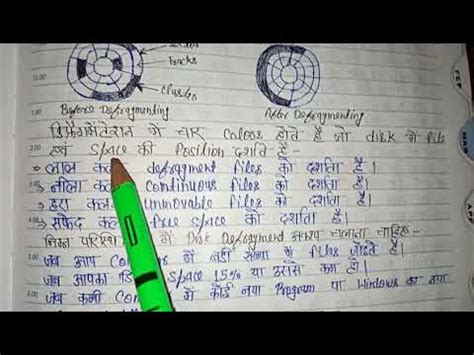 Tracks
Cluster
Before Defragmenting After Defragmenting
डिफ्रेगमेंटेशन में चार Colors होते है जो disk में file
एवं Space की Position दर्शाते है -
लाल कलर defragment files को दर्शाता है।
नीला कल continuous files को दर्शाता है।
हरा कल unmovable files को दर्शाता है।
सफेद कल free space को दर्शाता है।
निम्न में Disk Defragment चलाना चाहिए -
जब आप Com में बड़ी संख्या में files जोड़ते है।
जब आपका डि Space 15% या उससे कम हो।
जब कभी Com में कोई नया Program या Windows का नया